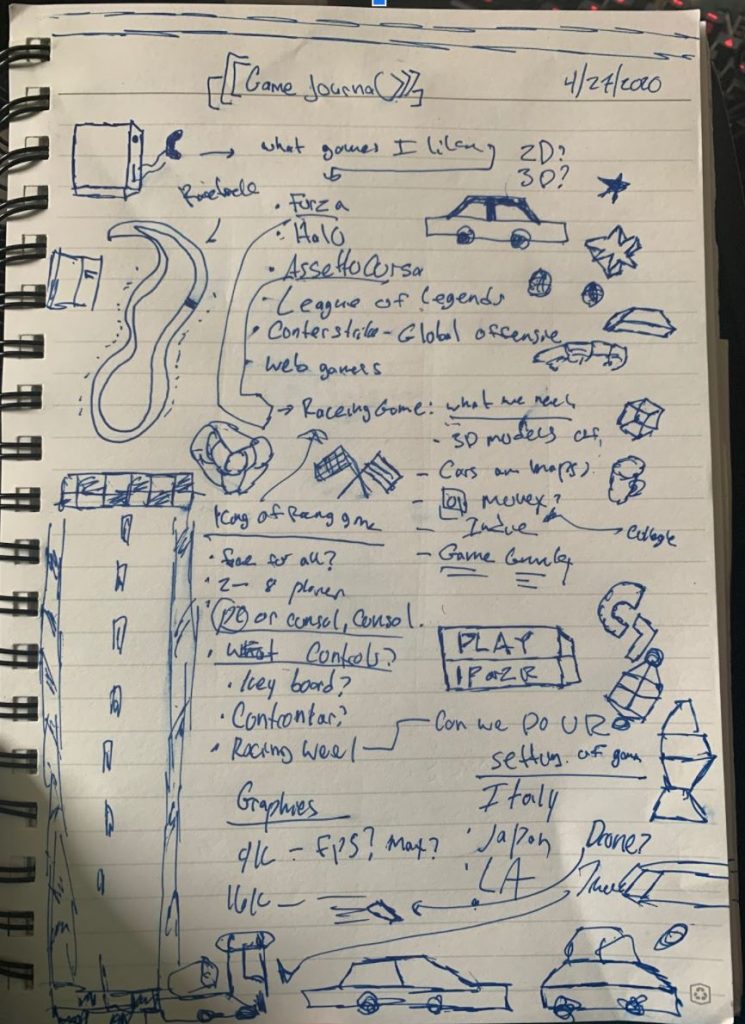 Game Journal
4/27/2020
what games I like
2D?
3D?
Racetrack
• Forza
• Halo
• Assetto Corsa
- League of Legends
• Conterstrike - Global offensive
• web games
→ Raceing Game: what we need
- 3D models of,
- Cars and maps
- or Movex?
- Indue
College
- Game
King of Racing game
• free for all?
• 2 - 8 player
• PC or consol, consol.
• What Controls?
• Key board?
• Controntar?
• Racing Weel
PLAY
1P or 2P
Can we Do UR
setting of game
Italy
• Japan
• LA
Graphies
4K - FPS? Max?
16K -
Drone?